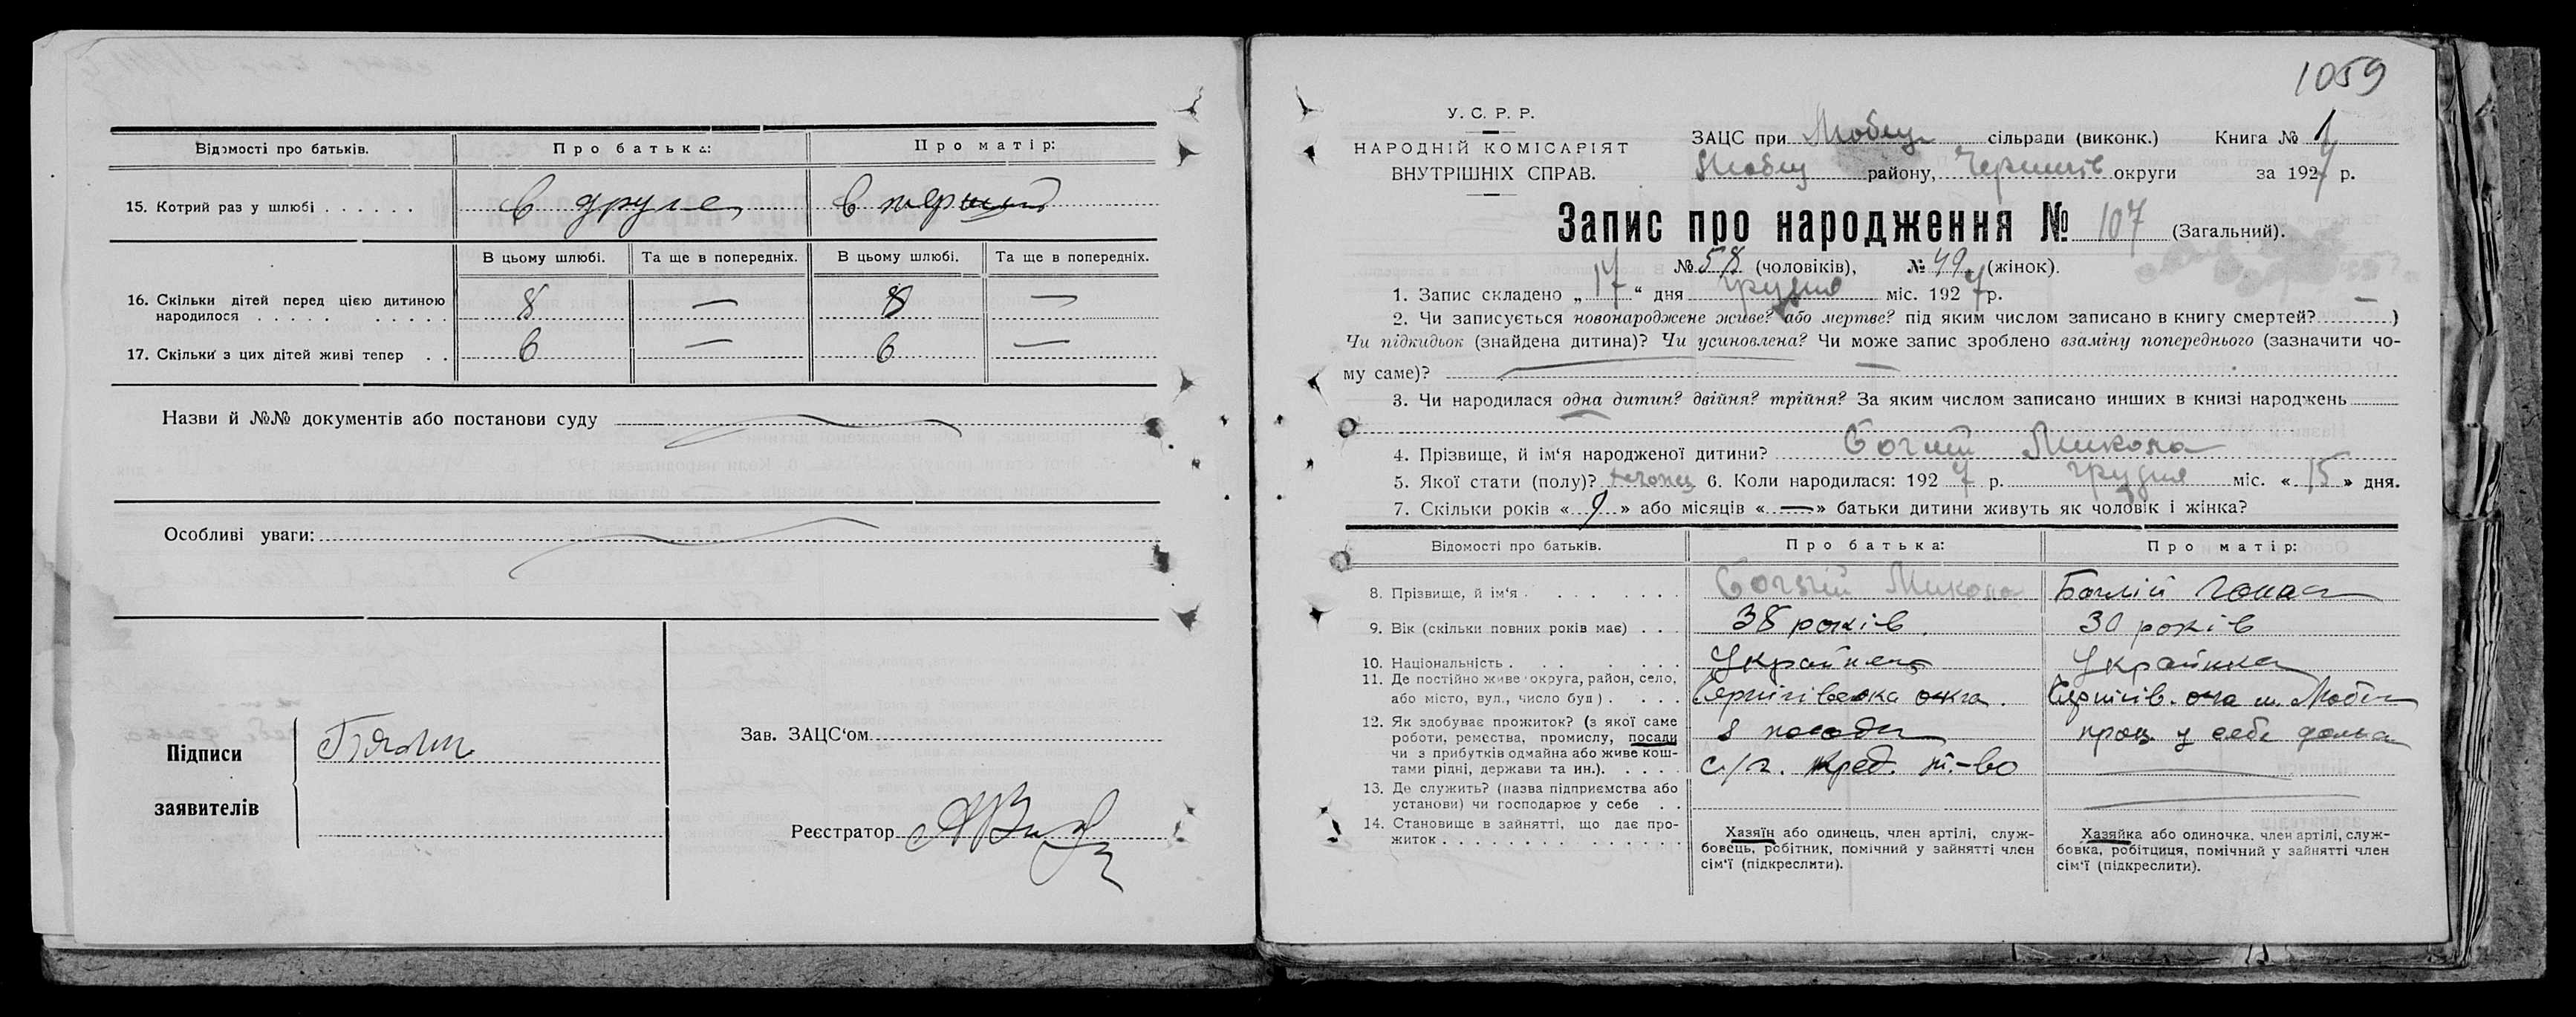 Відомості про батьків.
Про батька:
Про матір:
15. Котрий раз у шлюбі . . . . . .
в друге
в перший
В цьому шлюбі.
Та ще в попередніх.
В цьому шлюбі.
Та ще в попередніх.
16. Скільки дітей перед цією дитиною
народилося . . . . . . . . . .
8
—
8
—
17. Скільки з цих дітей живі тепер . .
6
—
6
—
Назви й №№ документів або постанови суду
Особливі уваги:
Підписи
заявителів
Зав. ЗАЦС'ом
Реєстратор
1059
У. С. Р. Р.
НАРОДНІЙ КОМІСАРІЯТ
ВНУТРІШНІХ СПРАВ.
ЗАЦС при Любец сільради (виконк.) Книга № 1
Любец району, Чернигів округи за 1927 р.
Запис про народження № 107 (Загальний).
№ 58 (чоловіків), № 49 (жінок).
1. Запис складено „17“ дня грудня міс. 1927 р.
2. Чи записується новонароджене живе? або мертве? під яким числом записано в книгу смертей? — )
Чи підкидьок (знайдена дитина)? Чи усиновлена? Чи може запис зроблено взаміну попереднього (зазначити чо-
му саме)?
3. Чи народилася одна дитин? двійня? трійня? За яким числом записано инших в книзі народжень
4. Прізвище, й ім'я народженої дитини? Микола
5. Якої стати (полу)? 6. Коли народилася: 1927 р. грудня міс. «15» дня.
7. Скільки років «9» або місяців «—» батьки дитини живуть як чоловік і жінка?
Відомості про батьків.
Про батька:
Про матір:
8. Прізвище, й ім'я . . . . . .
Микола
9. Вік (скільки повних років має) . . .
38 років.
30 років
10. Національність . . . . . .
Українец
Українка
11. Де постійно живе (округа, район, село,
або місто, вул., число буд) . . . .
Чернігівська окга.
Чернігів. окга м. Любеч
12. Як здобуває прожиток? (з якої саме
роботи, ремества, промислу, посади
чи з прибутків одмайна або живе кош-
тами рідні, держави та ин.). . . . .
з посади
с/г. кред. т-во
прац у себе дома
13. Де служить? (назва підприємства або
установи) чи господарює у себе . .
14. Становище в зайнятті, що дає про-
житок . . . . . . . . . . . . . .
Хазяїн або одинець, член артілі, служ-
бовець, робітник, помічний у зайнятті член
сім'ї (підкреслити).
Хазяйка або одиночка, член артілі, служ-
бовка, робітниця, помічний у зайнятті член
сім'ї (підкреслити).